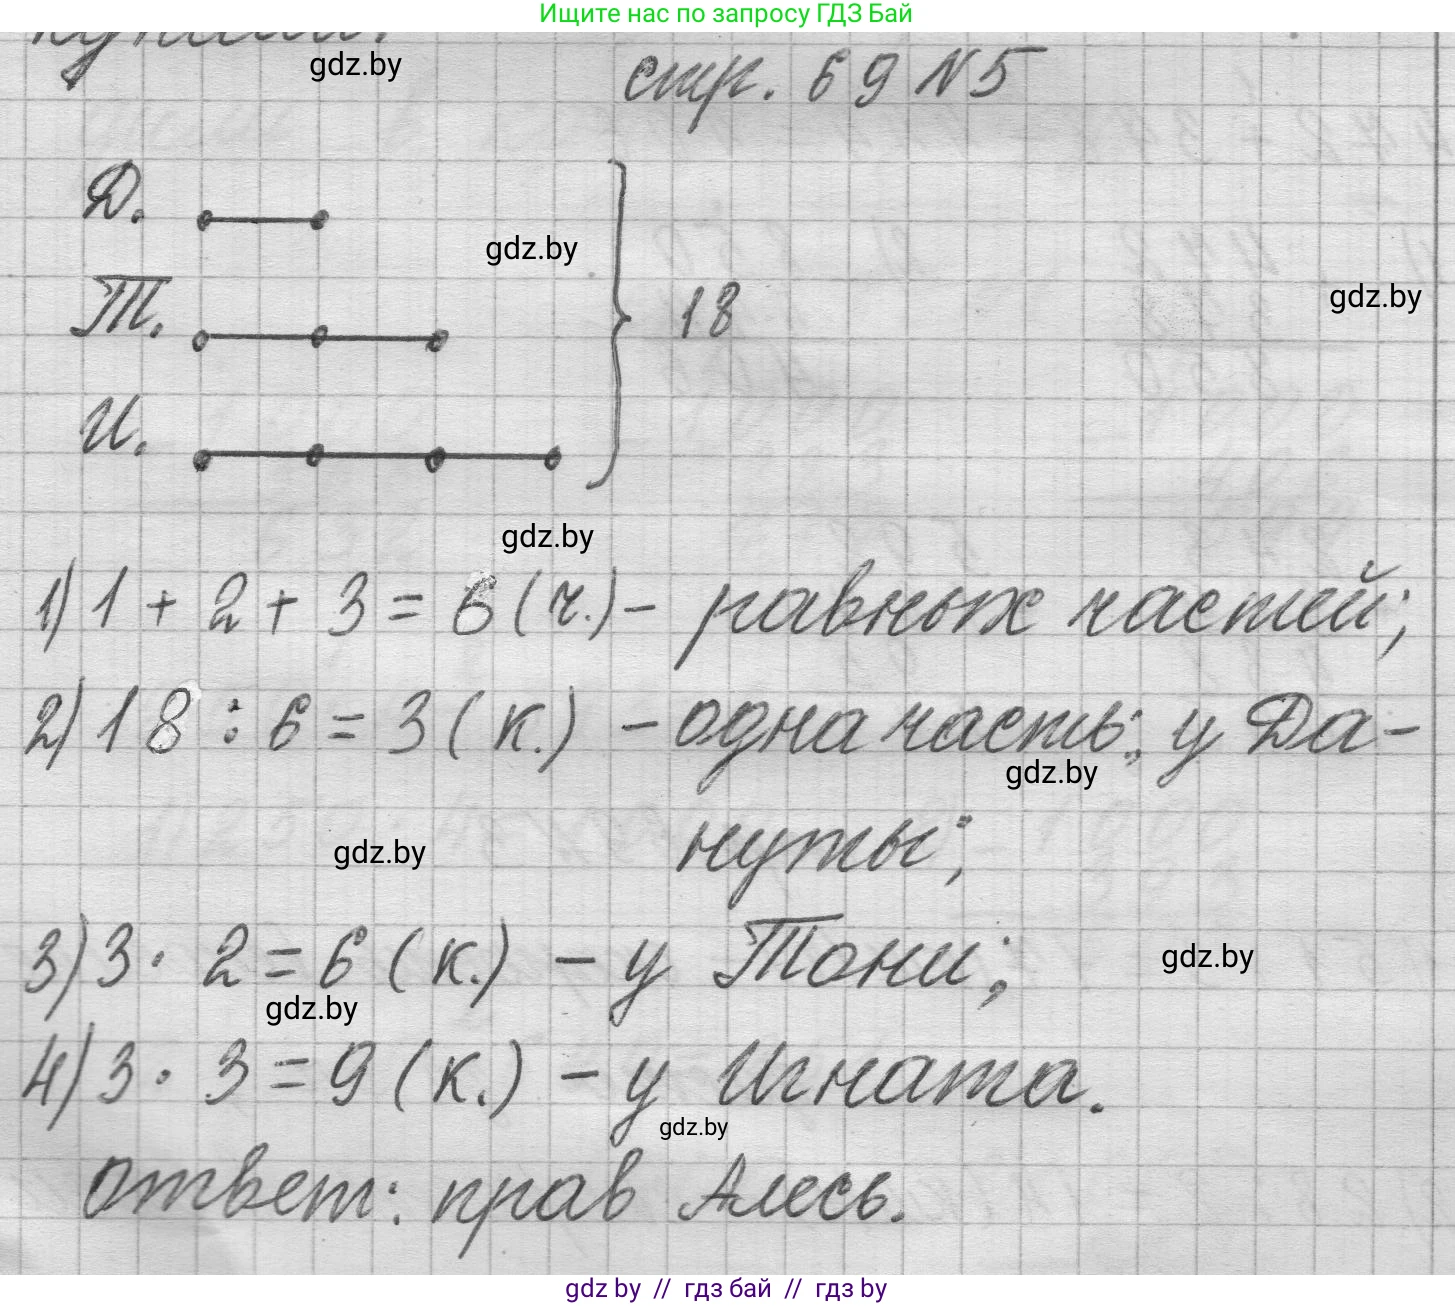 Ищите нас по запросу ГДЗ Бай
gdz.by
стр. 69 №5
Д.
gdz.by
Т.
18
gdz.by
И.
gdz.by
1) 1 + 2 + 3 = 6 (ч.) - равных частей;
2) 18 : 6 = 3 (к.) - одна часть; у Да-
gdz.by
нуты;
gdz.by
3) 3 · 2 = 6 (к.) - у Тони;
gdz.by
gdz.by
4) 3 · 3 = 9 (к.) - у Игната.
gdz.by
ответ: прав Алесь.
gdz by // гдз бай // гдз by